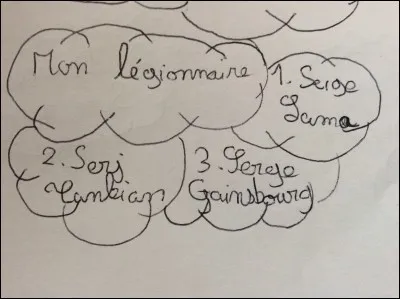 Mon légionnaire
1. Serge
Lama
2. Serj
Tankian
3. Serge
Gainsbourg